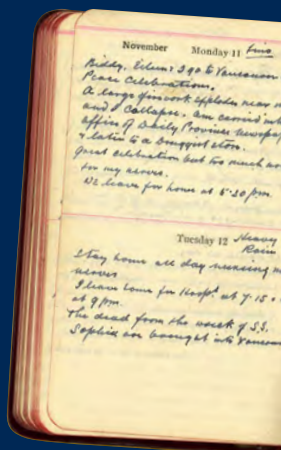 November Monday 11 Fine
Biddy, Eileen & I go to Vancouver
Peace Celebrations.
A large firework explodes near
and I collapse. am carried into
office of Daily Province newspap
& later to a Druggist store.
Great celebration but too much
for my nerves.
We leave for home at 5.20 pm
Tuesday 12 Heavy Rain
Stay home all day nursing
nerves
I leave home for Hospt at 7.15
at 9 pm.
The dead from the wreck of S.S.
Sophia are brought into Vancouv